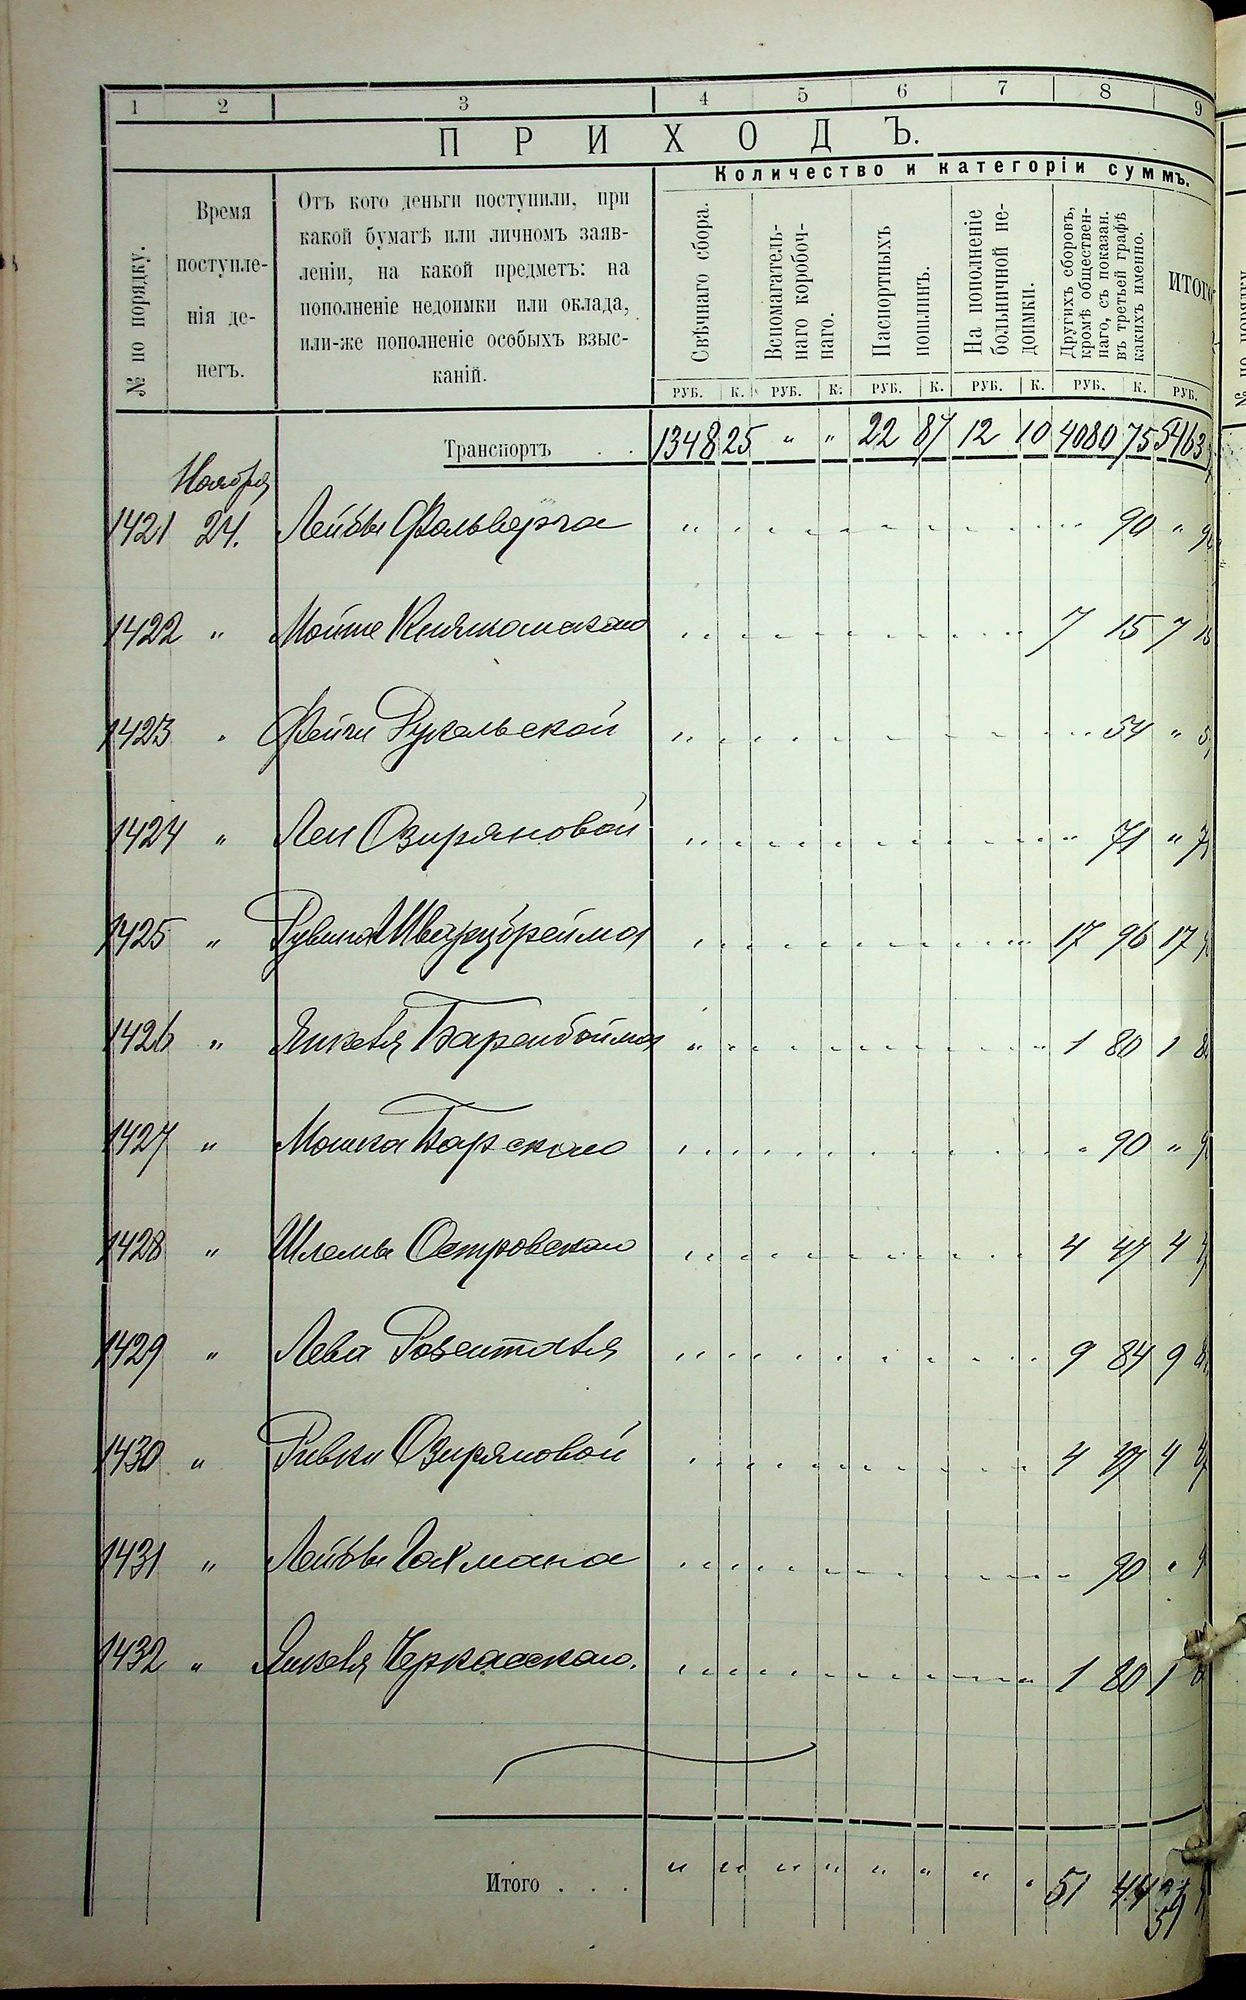 1 2 3 4 5 6 7 8 9
ПРИХОДЪ.
Количество и категоріи суммъ.
№ по порядку.
Время поступле-
нія де-
негъ.
Отъ кого деньги поступили, при
какой бумагѣ или личномъ заяв-
леніи, на какой предметъ: на
пополненіе недоимки или оклада,
или-же пополненіе особыхъ взыс-
каній.
Свѣчнаго сбора.
Вспомагатель-
наго коробоч-
наго.
Паспортныхъ
пошлинъ.
На пополненіе
больничной не-
доимки.
Другихъ сборовъ,
кромѣ обществен-
наго, съ показан.
въ третьей графѣ
какихъ именно.
ИТОГО
РУБ. К. РУБ. К. РУБ. К. РУБ. К. РУБ. К. РУБ.
Транспортъ . . 1348 25 " " 22 87 12 10 4080 75 5463
Ноября
1421 24. Лейбы Фальверга " 90 "
1422 " Мойше 7 15 7 15
1423 " Фейги 54 "
1424 " Леи Озиряновой 71 " 71
1425 " Рувина Шварцбрейма 17 96 17
1426 " Янкеля Баренбойма 1 80 1 80
1427 " Мошка Барскаго " 90 "
1428 " Шлемы Островскаго 4 47 4
1429 " Лева Розенталя 9 84 9
1430 " Ривки Озиряновой 4 47 4
1431 " Лейбы Гохмана " 90 "
1432 " Янкеля Черкасскаго. 1 80 1
Итого . . . " " " " " " " " 51 44 51